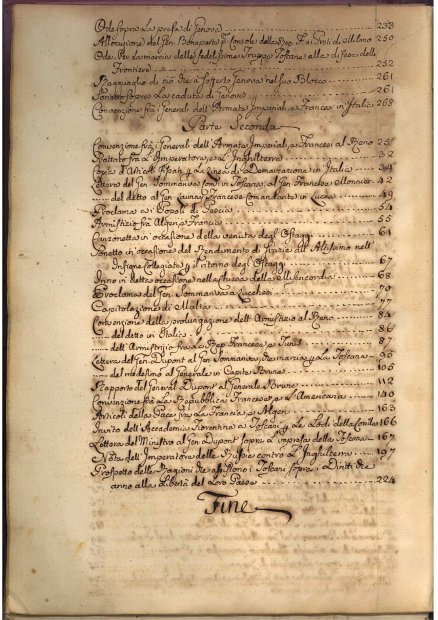 Ode sopra la presa di Genova 233
Allocuzione del Gen. Bonaparte P. Console della Rep. F. ai Preti di Milano 250
Ode Per la marcia delle fedelissime Truppe Toscane alla difesa delle
Frontiere 252
Ragguaglio di ciò che à sofferto Genova nel suo Blocco 261
Sonetto sopra la caduta di Genova 261
Convenzione fra i Generali dell' Armata Imperial, e Francese in Italia 268
Parte Seconda
Convenzione frà i Generali dell' Armata Imperial, e Francesi al Reno 25
Trattato fra L'Imperatore, e L'Inghilterra 32
Copia d'Articoli p la Linea di Demarcazione in Italia 34
Lettera del Gen. Sommariva Com. in Toscana, al Gen. Francese Monnier 42
del detto al Gen. Launay Francese Comandante in Lucca 49
Proclama a i Popoli di Pescia 54
Armistizio fra Algeri, e Francia 55
Canzonetta in occasione della venuta degl' Ostaggi 64
Sonetto in occasione del Rendimento di Grazie all' Altissimo nell'
Insigne Collegiata p il ritorno degl' Ostaggi 67
Inno in detta occasione nella chiesa della Misericordia 68
Proclama del Gen. Sommariva a Lucchesi 70
Capitolazione di Malta 77
Convenzione della prolungazione dell' Armistizio al Reno 84
del detto in Italia 86
dell' Armistizio fra la Rep. Francese, e Tunis 87
Lettera del Gen. Dupont al Gen. Sommariva, che marcia p la Toscana 95
del medesimo al Generale in Capite Brune 105
Rapporto del General Dupont al Generale Brune 112
Convenzione fra la Repubblica Francese, e l'Americana 140
Articoli della Pace fra la Francia, e Algeri 163
Invito dell' Accademia Fiorentina a Toscani p le Lodi della 166
Lettera del Ministro al Gen. Dupont sopra l'impresa della Toscana 167
Nota dell' Imperatore della Russia contro l'Inghilterra 197
Prospetto delle Ragioni che assistono i Toscani sopra i Diritti che
anno alla Libertà del Loro Paese 224
Fine